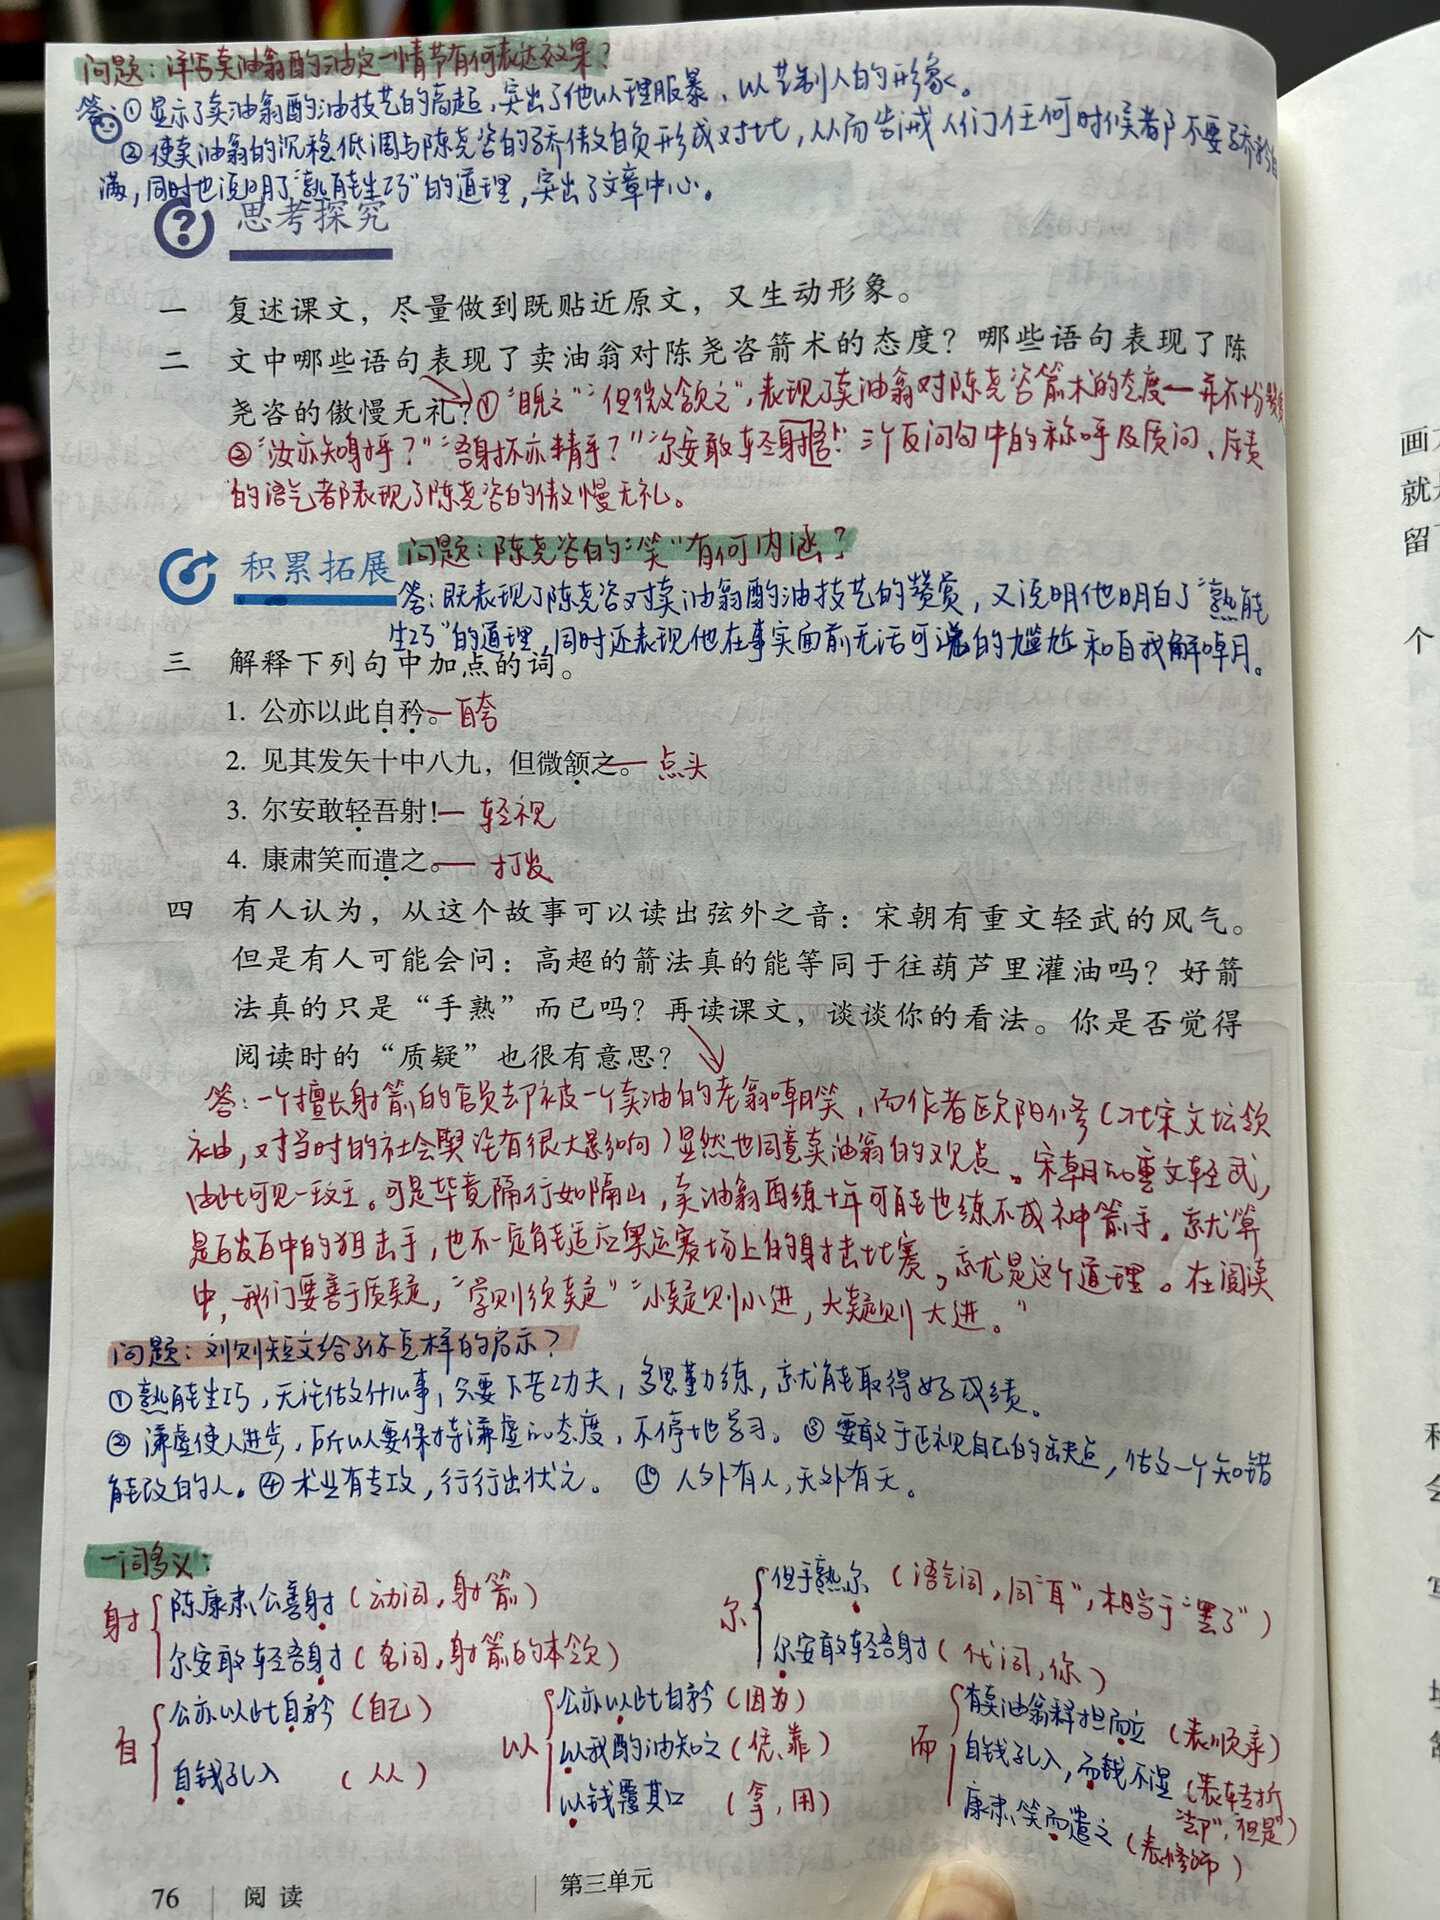 问题：详写卖油翁酌油这一情节有何表达效果？
答：①显示了卖油翁酌油技艺的高超，突出了他以理服暴、以艺制人的形象。
②使卖油翁的沉稳低调与陈尧咨的骄傲自负形成对比，从而告诫人们任何时候都不要骄矜自
满，同时也说明了“熟能生巧”的道理，突出了文章中心。
思考探究
一 复述课文，尽量做到既贴近原文，又生动形象。
二 文中哪些语句表现了卖油翁对陈尧咨箭术的态度？哪些语句表现了陈
尧咨的傲慢无礼？
①“睨之”“但微颔之”，表现了卖油翁对陈尧咨箭术的态度—并不怎
②“汝亦知射乎？”“吾射不亦精乎？”“尔安敢轻吾射！”三个反问句中的称呼及质问、斥责
的语气都表现了陈尧咨的傲慢无礼。
积累拓展
问题：陈尧咨的“笑”有何内涵？
答：既表现了陈尧咨对卖油翁酌油技艺的赞赏，又说明他明白了“熟能
生巧”的道理，同时还表现他在事实面前无话可说的尴尬和自我解嘲。
三 解释下列句中加点的词。
1. 公亦以此自矜。—自夸
2. 见其发矢十中八九，但微颔之。—点头
3. 尔安敢轻吾射！—轻视
4. 康肃笑而遣之。—打发
四 有人认为，从这个故事可以读出弦外之音：宋朝有重文轻武的风气。
但是有人可能会问：高超的箭法真的能等同于往葫芦里灌油吗？好箭
法真的只是“手熟”而已吗？再读课文，谈谈你的看法。你是否觉得
阅读时的“质疑”也很有意思？
答：一个擅长射箭的官员却被一个卖油的老翁嘲笑，而作者欧阳修（北宋文坛领
袖，对当时的社会舆论有很大影响）显然也同意卖油翁的观点。宋朝的重文轻武，
由此可见一斑。可是毕竟隔行如隔山，卖油翁再练十年可能也练不成神箭手。就算
是百发百中的狙击手，也不一定能适应奥运赛场上的射击比赛，就是这个道理。在阅读
中，我们要善于质疑，“学则须疑”“小疑则小进，大疑则大进。”
问题：刘则短文给了你怎样的启示？
①熟能生巧，无论做什么事，只要下苦功夫，多思勤练，就能取得好成绩。
②谦虚使人进步，所以要保持谦虚的态度，不停地学习。③要敢于正视自己的缺点，做一个知错
能改的人。④术业有专攻，行行出状元。⑤人外有人，天外有天。
一词多义：
射 陈康肃公善射（动词，射箭）
尔安敢轻吾射（名词，射箭的本领）
尔 但手熟尔（语气词，同“耳”，相当于“罢了”）
尔安敢轻吾射（代词，你）
自 公亦以此自矜（自己）
自钱孔入（从）
以 公亦以此自矜（因为）
以我酌油知之（凭、靠）
以钱覆其口（拿，用）
而 有卖油翁释担而立（表顺承）
自钱孔入，而钱不湿（表转折
“却”，“但是”）
康肃笑而遣之（表修饰）
76 阅读 第三单元
画
就是
留
个
会